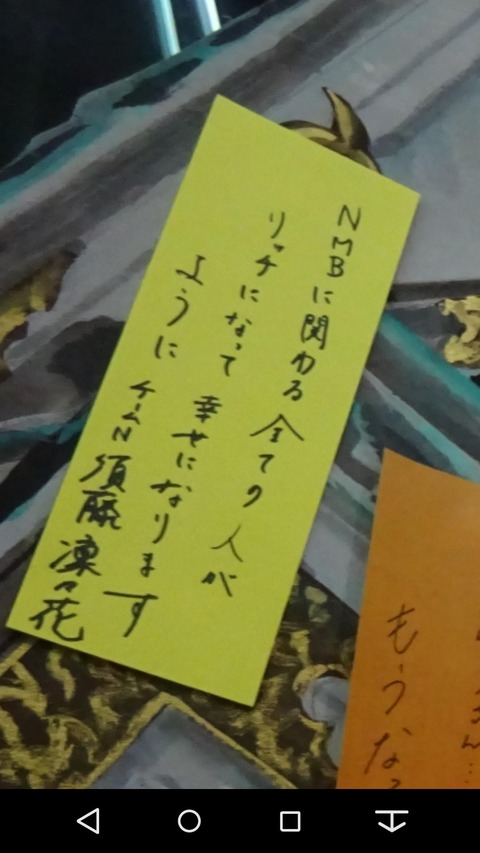 NMBに関わる全ての人が
リッチになって幸せになります
ように
チームN 須藤凜々花
もうなっ